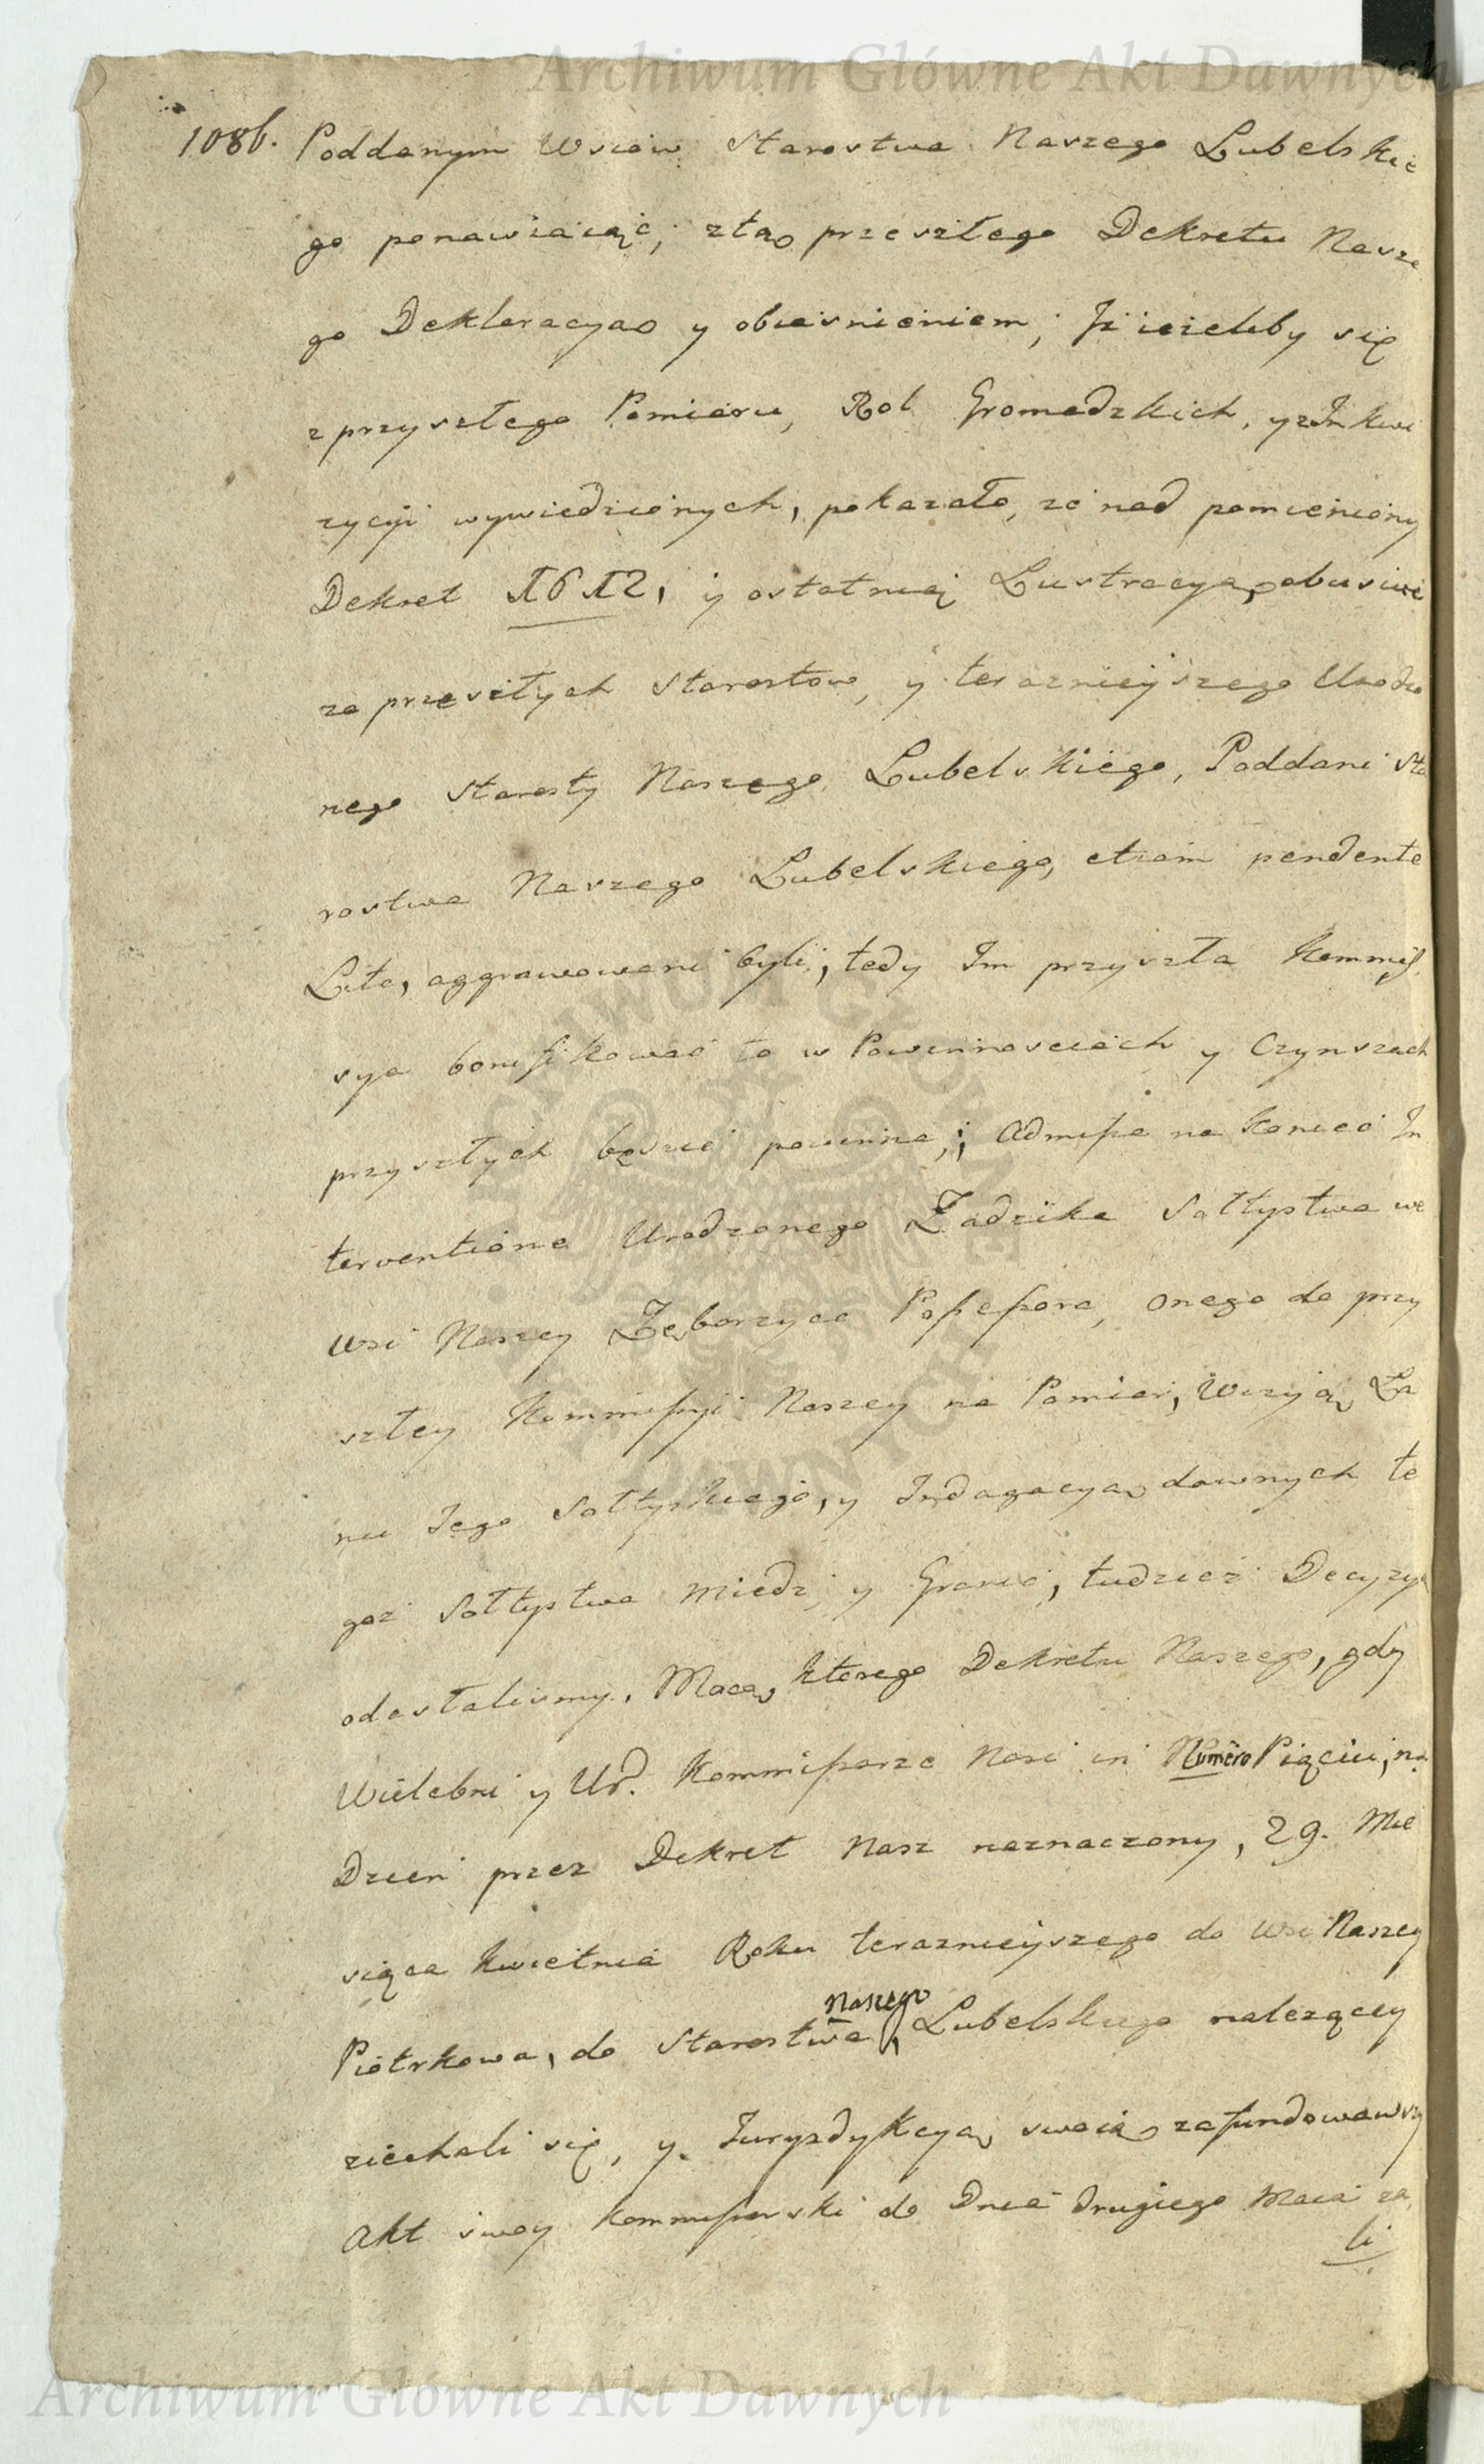 Archiwum Główne Akt Dawnych
1086. Poddanym Wsiow Starostwa Naszego Lubelskie
go ponawiaiąc, ztąo przeszłego Dekretu Nasze
go Deklaracyąo y obiasnieniem, Jż ieżeliby się
z przyszłego Pomiaru, Rol Gromadzkich, y z Inkwi
zycyi wywiedzionych, pokazało, że nad pomieniony
Dekret 1612, y ostatnią Lustracyą, abusive
za przeszłych Starostow, y teraznieyszego Urodzo
nego Starosty Naszego Lubelskiego, Poddani Sta
rostwa Naszego Lubelskiego, etiam pendente
Lite, aggrawowani byli, tedy Im przyszła Kommis
sya bonifikować to w Powinnosciach y Czynszach
przyszłych będzie powinna,; Admissa na koniec In
terventione Urodzonego Żadzika Sołtystwa we
Wsi Naszey Zęborzyce Possessora, onego do przy
szłey Kommissyi Naszey na Pomiar, Wizyią Ła
nu Jego Sołtyskiego, y Indagacyą dawnych te
goż Sołtystwa Miedz y Granic, tudzież Decyzyą
odesłalismy. Mocą, ktorego Dekretu Naszego, gdy
Wielebni y Ur. Kommissarze Nasi in Numero Pięciu, na
Dzien przez Dekret Nasz naznaczony, 29. Mie
siąca Kwietnia Roku teraznieyszego do Wsi Naszey
Naszego
Piotrkowa, do Starostwa, Lubelskiego należącey
ziechali się, y Juryzdykcyą swoiąo zafundowawszy
Akt swoy Kommissarski do Dnia drugiego Maia za
li
Archiwum Główne Akt Dawnych